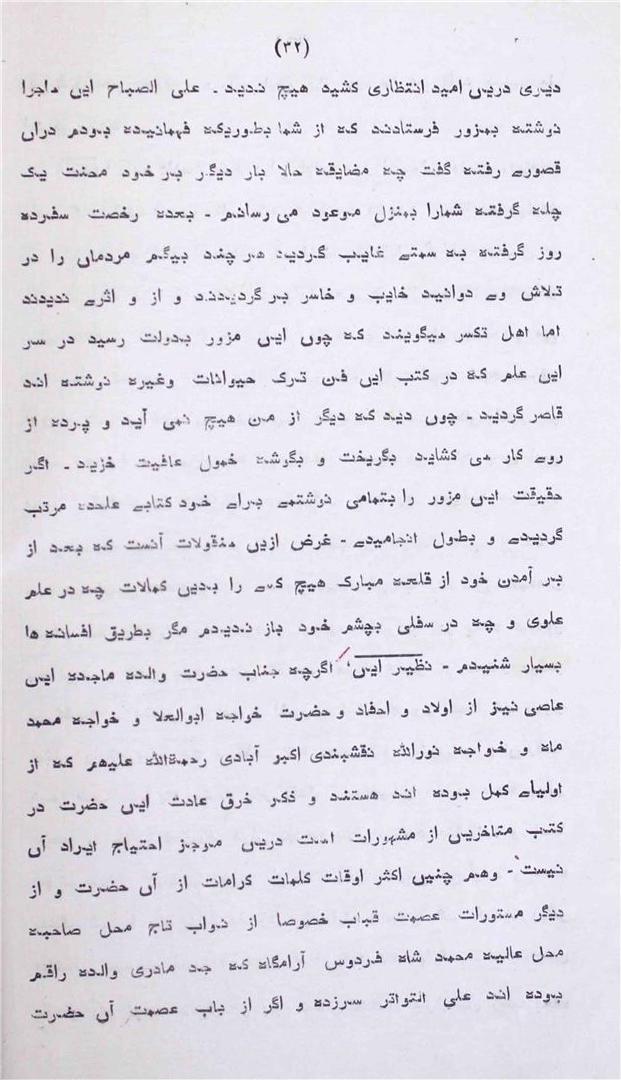 (۳۲)
دیری دریں امید انتظاری کشید هیچ ندید ـ علی الصباح ایں ماجرا
نوشته بمزور فرستادند که از شما بطوریکه فهمانیده بودم دراں
قصورے رفته گفت چه مضایقه حالا بار دیگر بار خود محنت یک
چله گرفته شمارا بمنزل موعود می رسانم ـ بعده رخصت سفرده
روز گرفته به سمتے غایب گردید هر چند بیگم مردمان را در
تلاش وے دوانید خایب و خاسر بر گردیدند و از و اثرے ندیدند
اما اهل تکسر میگویند که چوں ایں مزور بدولت رسید در سر
ایں علم که در کتب ایں فن ترک حیوانات وغیره نوشته اند
قاصر گردید ـ چوں دید که دیگر از من هیچ نمی آید و پرده از
روے کار می کشاید بگریخت و بگوشه خمول عافیت خزید ـ اگر
حقیقت ایں مزور را بتمامی نوشتمے براے خود کتابے علحده مرتب
گردیدے و بطول انجامیدے ـ غرض ازیں منقولات آنست که بعد از
بر آمدن خود از قلعه مبارک هیچ کسے را بدیں کمالات چه در علم
علوی و چه در سفلی بچشم خود باز ندیدم مگر بطریق افسانه ها
بسیار شنیدم ـ نظیر ایں، اگرچه جناب حضرت والده ماجده ایں
عاصی نیز از اولاد و احفاد و حضرت خواجه ابوالعلا و خواجه محمد
ماه و خواجه نورالله نقشبندی اکبر آبادی رحمةالله علیهم که از
اولیاے کمل بوده اند هستند و ذکر خرق عادت ایں حضرت در
کتب متاخریں از مشهورات است دریں موجز احتیاج ایراد آں
نیست ـ وهم چنیں اکثر اوقات کلمات کرامات از آں حضرت و از
دیگر مستورات عصمت قباب خصوصا از نواب تاج محل صاحبه
محل عالیه محمد شاه فردوس آرامگاه که جد مادری والده راقم
بوده اند علی التواتر سرزده و اگر از باب عصمت آں حضرت